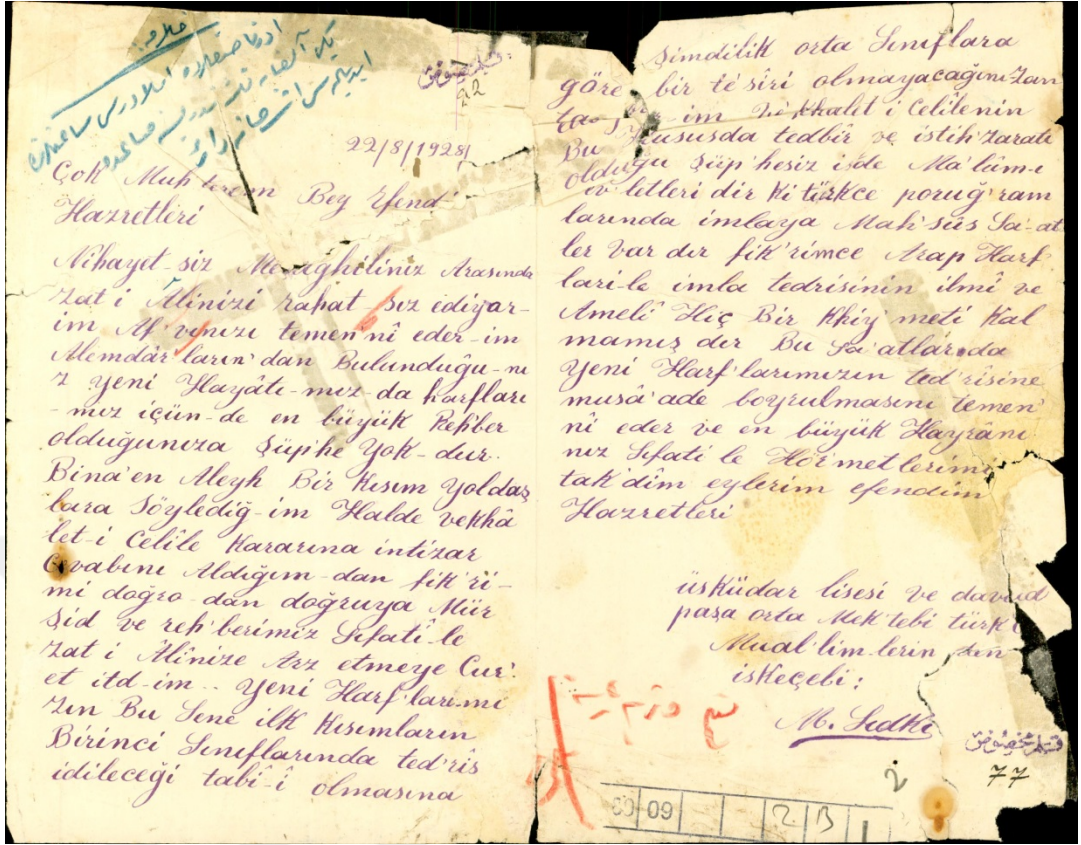 22/8/1928
Çok Muhterem Bey Efend
Hazretleri
Nihayet-siz Meşağhiliniz Arasında
Zat i Âlinizi rahat sız ediyor-
im Af'vınızı temen'nî eder-im
Alemdâr'ların'dan Bulunduğu-nu
z yeni Hayâtı-mız-da harfları
-mız içün-de en büyük Rehber
olduğunuza Şüphe Yok-dur.
Bina'en Aleyh Bir Kısım Yoldaş
lara Söylediğ-im Halde vekhâ
let-i Celîle Kararına intizar
Cevabını Aldığım-dan fik'ri-
mi doğro-dan doğruya Mür
şid ve reh'berimiz Sıfatî-le
Zat i Âlînize Arz etmeye Cür'
et itd-im.. Yeni Harf'ları-mı
zın Bu Sene ilk Kısımların
Birinci Sınıflarında ted'ris
idileceği tabî-î olmasına
Şimdilik orta Sınıflara
göre bir te'sîri olmayacağını Zan
im Vekhalet i Celilenin
Bu Hususda tedbîr ve istih'zaratı
olduğu Şüp'hesiz ise de Ma'lûm-ı
âv letleri dir ki türkce poruğ'ram
larında imlaya Mah'süs Sa-at
ler Var dır fik'rimce Arap Harf
ları-le imla tedrisinin ilmî ve
Amelî Hiç Bir Khiy'meti Kal
mamış dır Bu Sa'atlar-da
Yeni Harf'larımızın ted'rîsine
musâ'ade boyrulmasını temen'
nî eder ve en büyük Hayrânı
nız Sıfatî le Hör'metlerimi
tak'dîm eylerim efendim
Hazretleri
üsküdar lisesi ve davud
paşa orta Mek'tebi türkc
Mual'lim-lerin den
iskeçebi:
M. Sıdkı
77
2
09
2 B 1